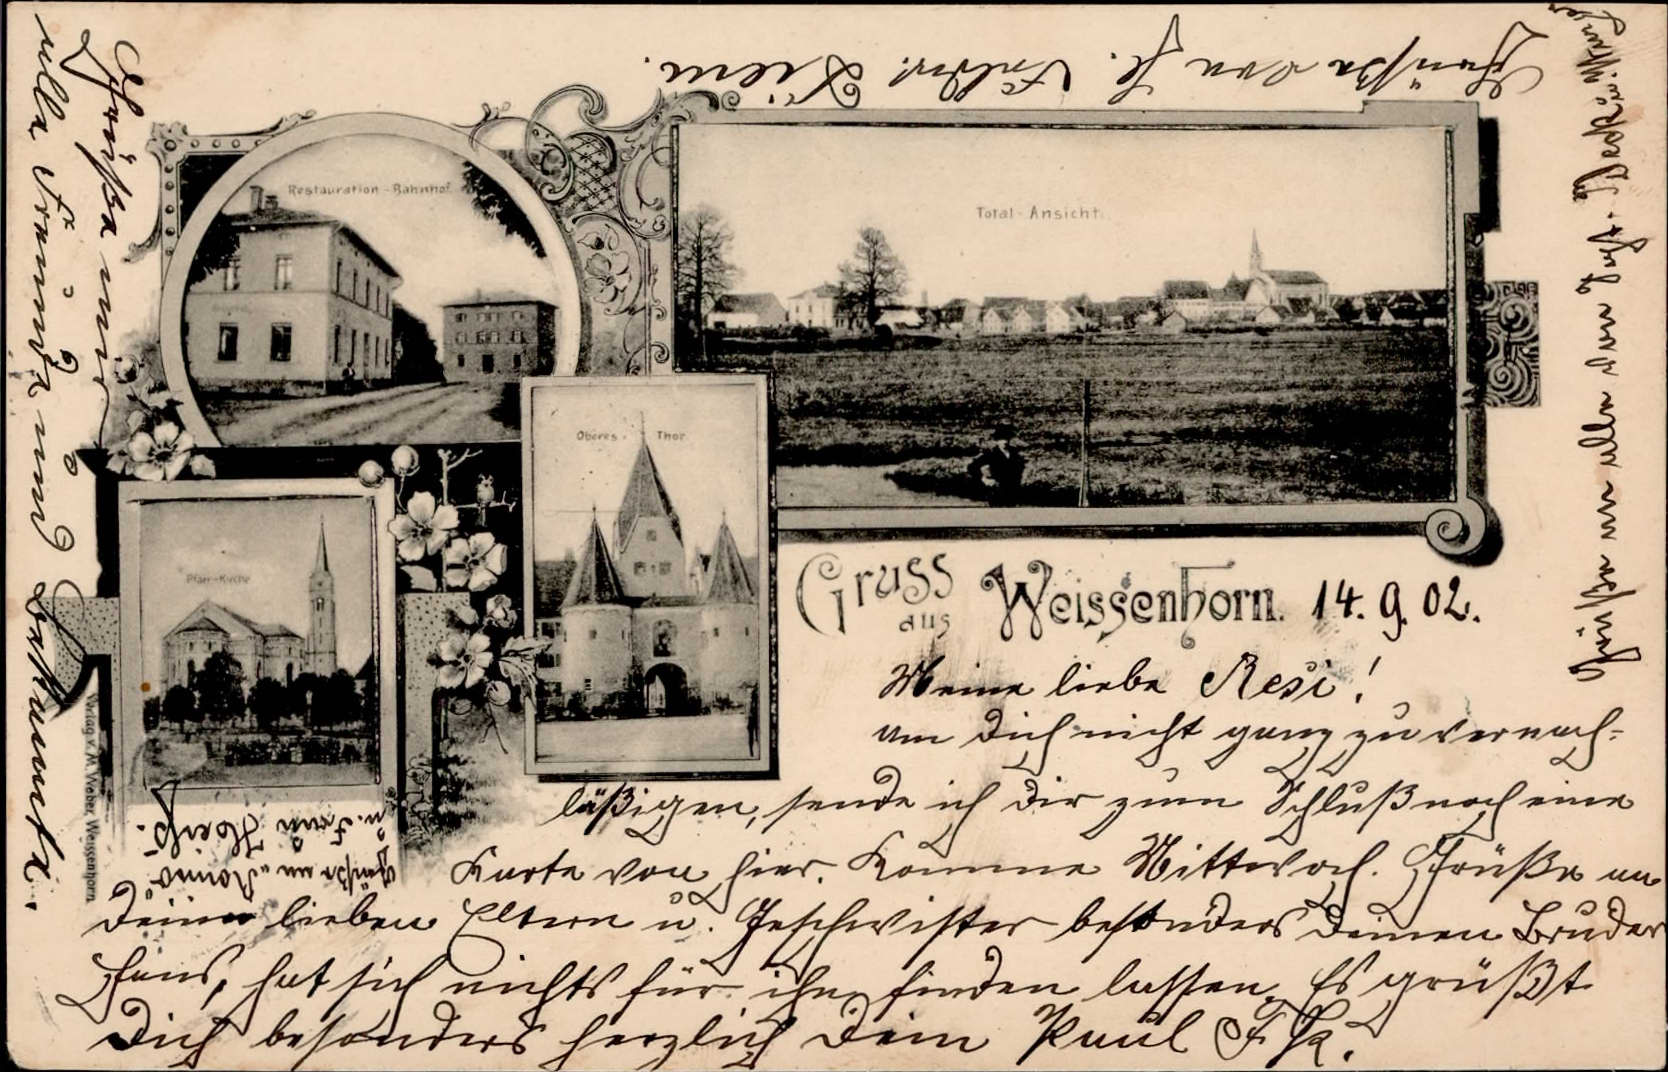 Grüße von
Restauration-Bahnhof.
Total-Ansicht.
Oberes-Thor
Pfarr-Kirche
Verlag v. M. Weber, Weissenhorn.
Gruss
aus
Weissenhorn. 14. 9. 02.
Meine liebe Resi!
um Dich nicht ganz zu vernach-
läßigen, sende ich dir zum Schluß noch eine
Karte von hier. Komme Mittwoch. Grüße an
deine lieben Eltern u. Geschwister besonders deinen Bruder
Hans, hat sich nichts für ihn finden lassen. Es grüßt
Dich besonders herzlich Dein Paul
Grüße mir
alle Freunde und Bekannte.
Grüße an
u. Frau
Grüße an alle